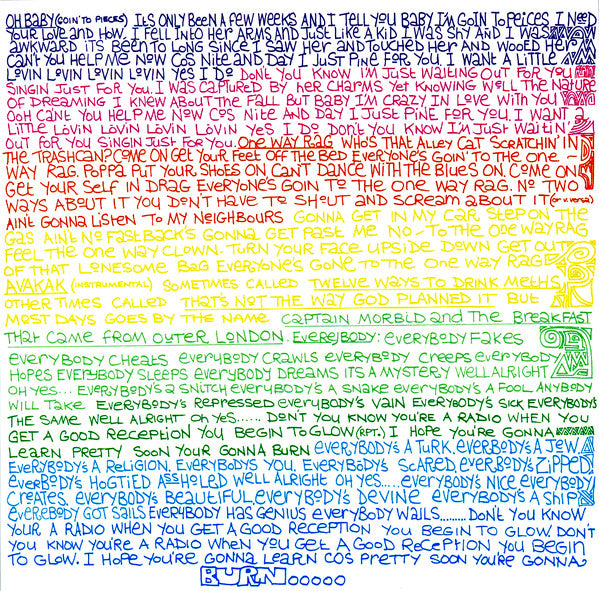 OH BABY (GOIN' TO PIECES) ITS ONLY BEEN A FEW WEEKS AND I TELL YOU BABY I'M GOIN TO PEICES. I NEED
YOUR LOVE AND HOW. I FELL INTO HER ARMS AND JUST LIKE A KID I WAS SHY AND I WAS
AWKWARD ITS BEEN TO LONG SINCE I SAW HER AND TOUCHED HER AND WOOED HER
CAN'T YOU HELP ME NOW COS NITE AND DAY I JUST PINE FOR YOU. I WANT A LITTLE
LOVIN LOVIN LOVIN LOVIN YES I DO DON'T YOU KNOW I'M JUST WAITING OUT FOR YOU
SINGIN JUST FOR YOU. I WAS CAPTURED BY HER CHARMS YET KNOWING WELL THE NATURE
OF DREAMING I KNEW ABOUT THE FALL BUT BABY I'M CRAZY IN LOVE WITH YOU
OOH CANT YOU HELP ME NOW COS NITE AND DAY I JUST PINE FOR YOU, I WANT A
LITTLE LOVIN LOVIN LOVIN LOVIN YES I DO DON'T YOU KNOW I'M JUST WAITIN'
OUT FOR YOU SINGIN JUST FOR YOU. ONE WAY RAG WHO'S THAT ALLEY CAT SCRATCHIN' IN
THE TRASHCAN? COME ON GET YOUR FEET OFF THE BED EVERYONE'S GOIN' TO THE ONE ~
WAY RAG. POPPA PUT YOUR SHOES ON CAN'T DANCE WITH THE BLUES ON. COME ON
GET YOUR SELF IN DRAG EVERYONE'S GOIN TO THE ONE WAY RAG. NO TWO
WAYS ABOUT IT YOU DON'T HAVE TO SHOUT AND SCREAM ABOUT IT (OR U VERSA)
AINT GONNA LISTEN TO MY NEIGHBOURS GONNA GET IN MY CAR STEP ON THE
GAS AINT NO FASTBACK'S GONNA GET PAST ME NO - TO THE ONE WAY RAG
FEEL THE ONE WAY CLOWN. TURN YOUR FACE UPSIDE DOWN GET OUT
OF THAT LONESOME BAG EVERYONE'S GONE TO THE ONE WAY RAG
AVAKAK (INSTRUMENTAL) SOMETIMES CALLED TWELVE WAYS TO DRINK METHS
OTHER TIMES CALLED THAT'S NOT THE WAY GOD PLANNED IT BUT
MOST DAYS GOES BY THE NAME CAPTAIN MORBID AND THE BREAKFAST
THAT CAME FROM OUTER LONDON. EVEREBODY: EVERYBODY FAKES
EVERYBODY CHEATS EVERYBODY CRAWLS EVERYBODY CREEPS EVERYBODY
HOPES EVERYBODY SLEEPS EVERYBODY DREAMS ITS A MYSTERY WELL ALRIGHT
OH YES... EVERYBODY'S A SNITCH EVERYBODY'S A SNAKE EVERYBODY'S A FOOL ANYBODY
WILL TAKE EVERYBODY'S REPRESSED EVERYBODY'S VAIN EVERYBODY'S SICK, EVERYBODY'S
THE SAME WELL ALRIGHT OH YES..... DON'T YOU KNOW YOU'RE A RADIO WHEN YOU
GET A GOOD RECEPTION YOU BEGIN TO GLOW (RPT.) I HOPE YOU'RE GONNA
LEARN PRETTY SOON YOUR GONNA BURN EVERYBODY'S A TURK, EVERBODY'S A JEW,
EVERYBODY'S A RELIGION, EVERYBODY'S YOU, EVERYBODY'S SCARED, EVERBODY'S ZIPPED
EVERBODY'S HOGTIED ASSHOLED WELL ALRIGHT OH YES.....EVERYBODY'S NICE EVERYBODY
CREATES, EVERYBODY'S BEAUTIFUL, EVERYBODY'S DEVINE EVERYBODY'S A SHIP
EVEREBODY GOT SAILS EVERYBODY HAS GENIUS EVERYBODY WAILS.........DON'T YOU KNOW
YOUR A RADIO WHEN YOU GET A GOOD RECEPTION YOU BEGIN TO GLOW. DON'T
YOU KNOW YOU'RE A RADIO WHEN YOU GET A GOOD RECEPTION YOU BEGIN
TO GLOW. I HOPE YOU'RE GONNA LEARN COS PRETTY SOON YOU'RE GONNA
BURN OOOOO